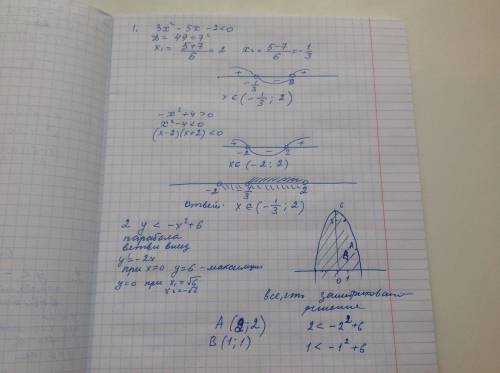 1. 3x² - 5x - 2 < 0
D = 49 = 7²
x₁ = (5+7)/6 = 2   x₂ = (5-7)/6 = -1/3
+ - +
-1/3 2
x ∈ (-1/3; 2)
-x² + 4 > 0
x² - 4 < 0
(x-2)(x+2) < 0
+ - +
-2 2
x ∈ (-2; 2)
-2 -1/3 2
Ответ: x ∈ (-1/3; 2)
2 y < -x² + 6
парабола
ветви вниз
y' = -2x
при x=0 y=6 - максимум
y=0 при x₁ = √6
x₂ = -√6
6
A
B
0 1
все, что заштриховано
решение
A (2; 2)   2 < -2² + 6
B (1; 1)   1 < -1² + 6